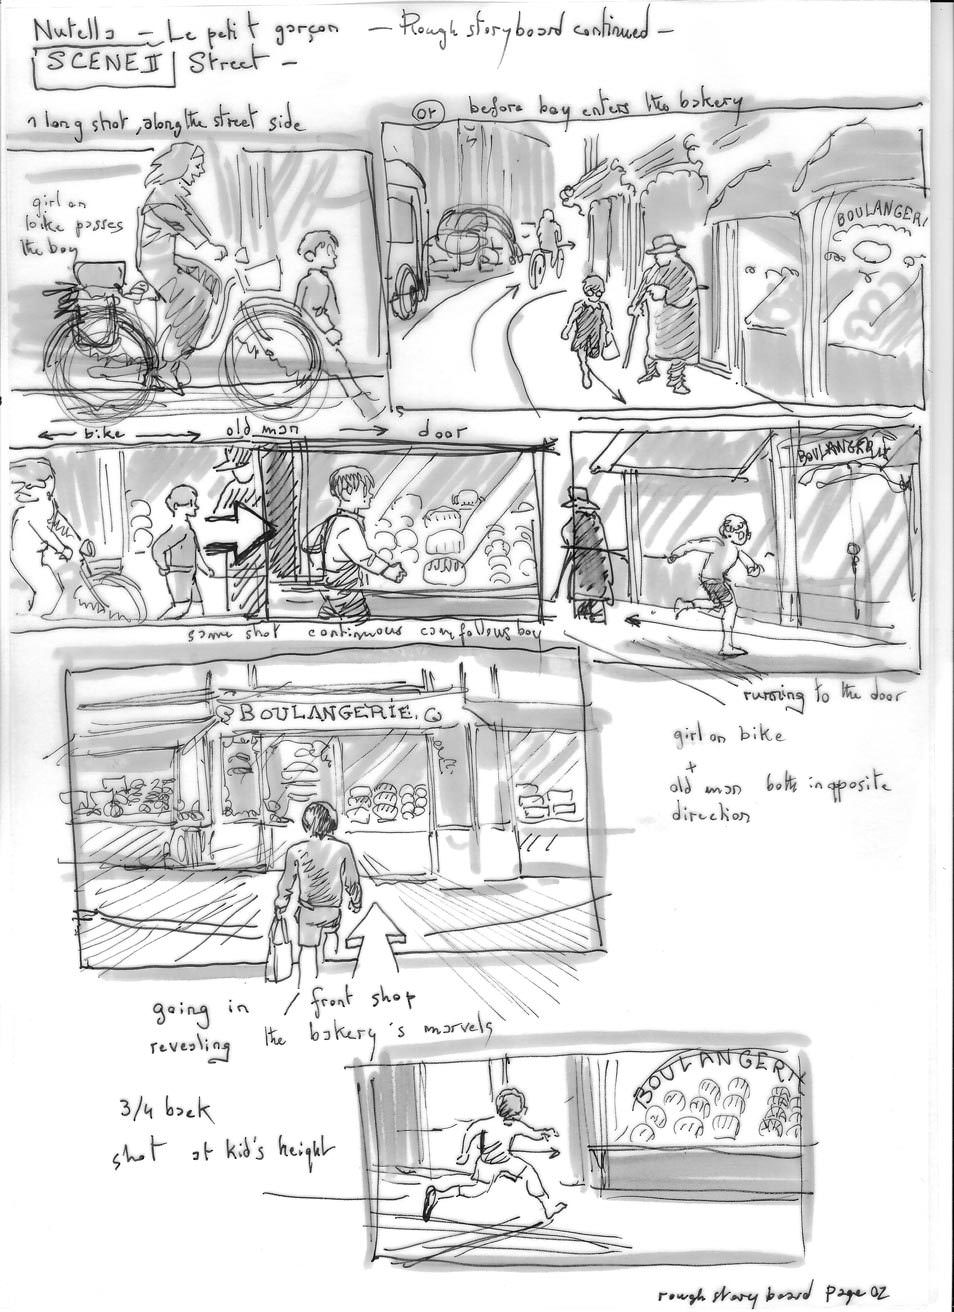 Nutella - Le petit garçon - Rough storyboard continued -
SCENE II Street -
1 long shot, along the street side
or before boy enters the bakery
girl on
bike passes
the boy
BOULANGERI
bike old man door
BOULANGERIE
same shot continuous cam follows boy
running to the door
BOULANGERIE
girl on bike
+
old man both in opposite
direction
going in / front shop
revealing the bakery's marvels
BOULANGERIE
3/4 back
shot at kid's height
rough story board page 02